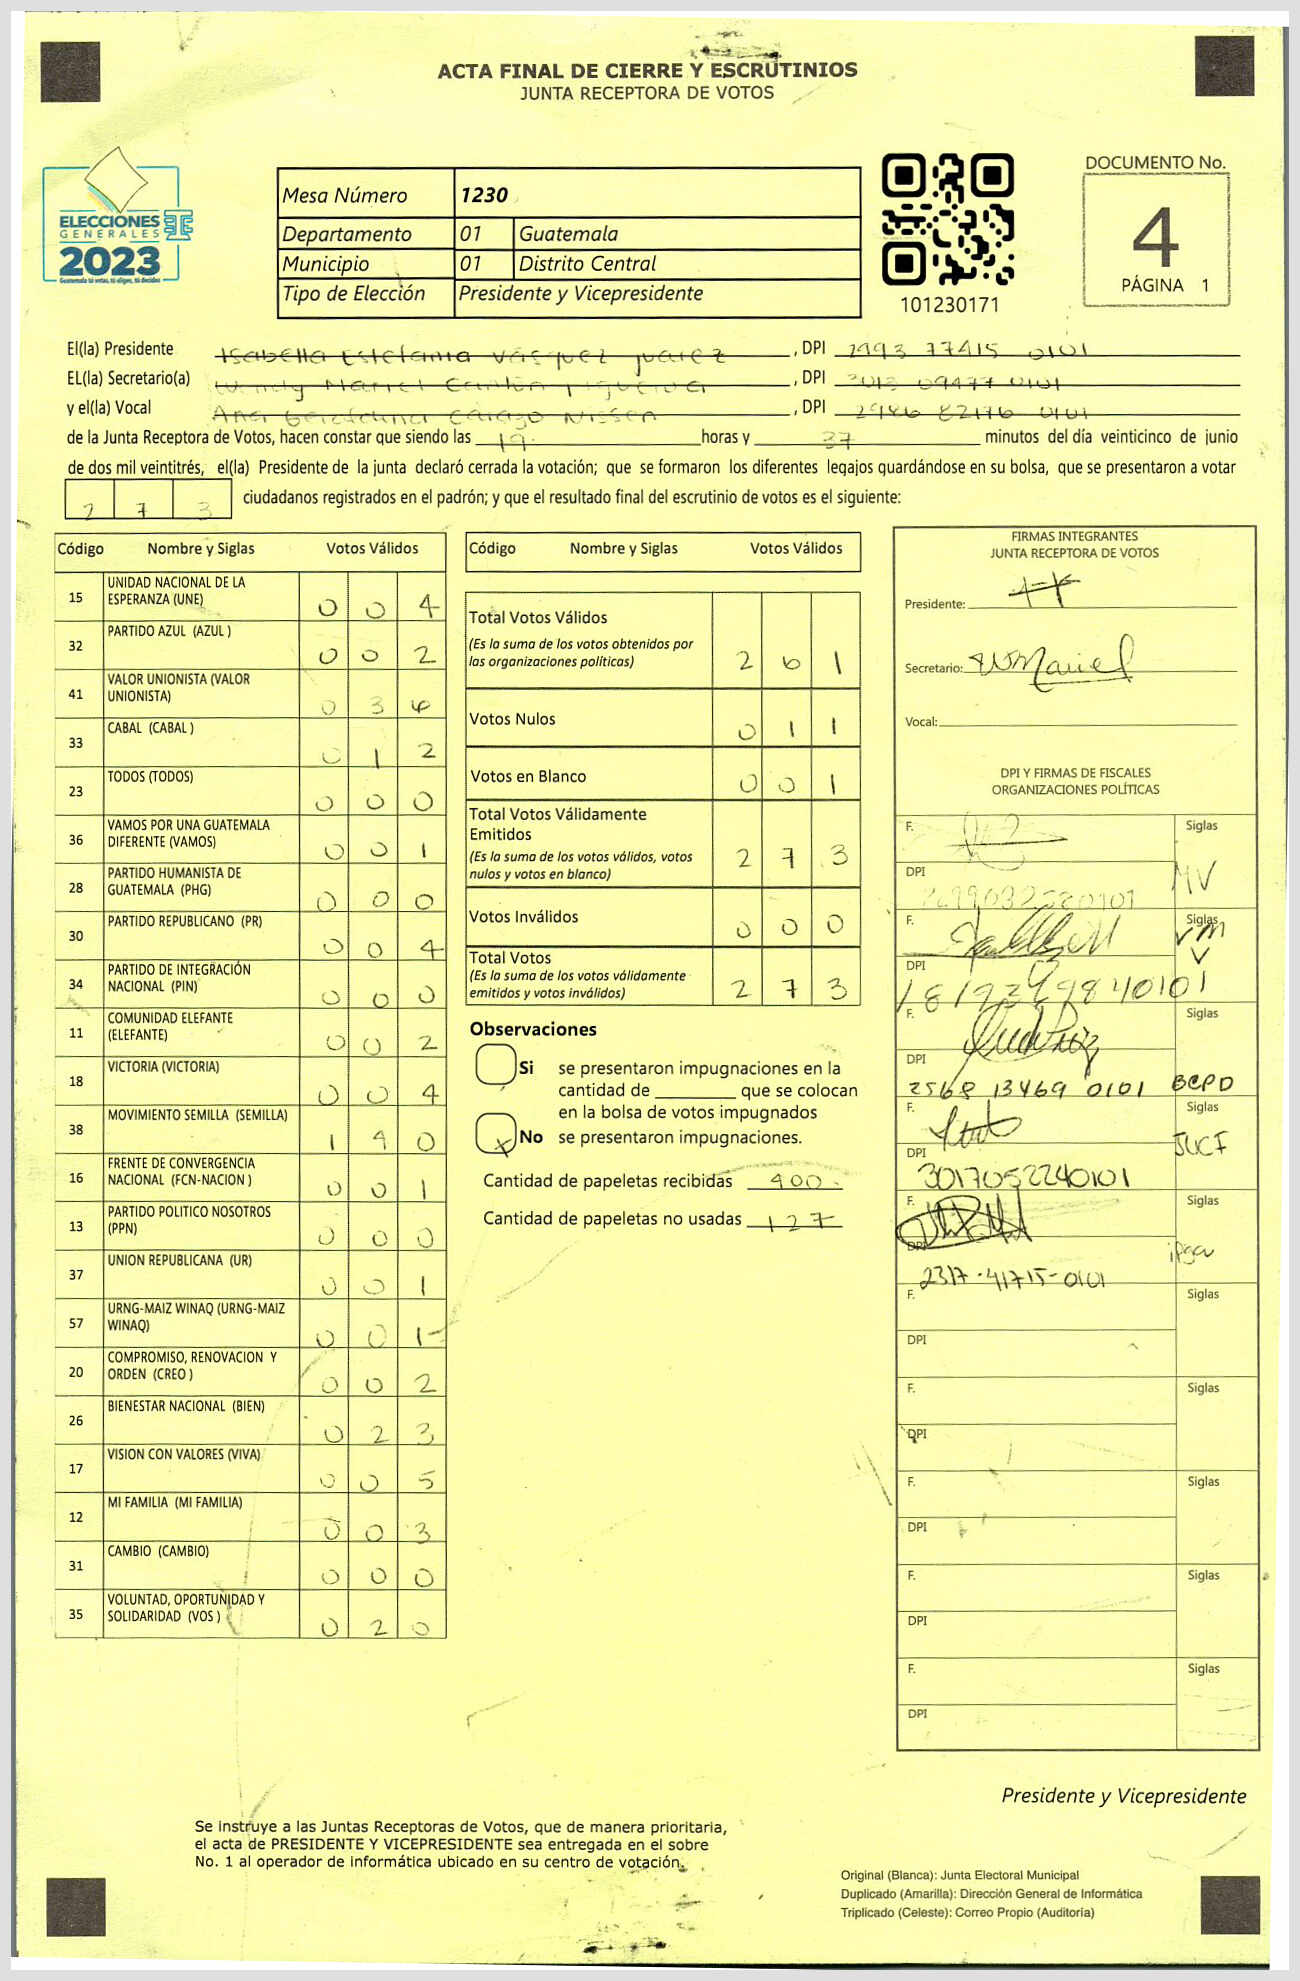 ACTA FINAL DE CIERRE Y ESCRUTINIOS
JUNTA RECEPTORA DE VOTOS
ELECCIONES
GENERALES
2023
Guatemala tú votas, tú eliges, tú decides
Mesa Número 1230
Departamento 01 Guatemala
Municipio 01 Distrito Central
Tipo de Elección Presidente y Vicepresidente
101230171
DOCUMENTO No.
4
PÁGINA 1
El(la) Presidente Isabella Estefania Vásquez Juarez, DPI 2993 77415 0101
EL(la) Secretario(a) Mariel, DPI 3013 09477 0101
y el(la) Vocal Ana Nissen, DPI 2986 82176 0101
de la Junta Receptora de Votos, hacen constar que siendo las 19 horas y 37 minutos del día veinticinco de junio
de dos mil veintitrés, el(la) Presidente de la junta declaró cerrada la votación; que se formaron los diferentes legajos guardándose en su bolsa, que se presentaron a votar
2 7 3 ciudadanos registrados en el padrón; y que el resultado final del escrutinio de votos es el siguiente:
Código Nombre y Siglas Votos Válidos
15 UNIDAD NACIONAL DE LA ESPERANZA (UNE) 0 0 4
32 PARTIDO AZUL (AZUL ) 0 0 2
41 VALOR UNIONISTA (VALOR UNIONISTA) 0 3 6
33 CABAL (CABAL ) 0 1 2
23 TODOS (TODOS) 0 0 0
36 VAMOS POR UNA GUATEMALA DIFERENTE (VAMOS) 0 0 1
28 PARTIDO HUMANISTA DE GUATEMALA (PHG) 0 0 0
30 PARTIDO REPUBLICANO (PR) 0 0 4
34 PARTIDO DE INTEGRACIÓN NACIONAL (PIN) 0 0 0
11 COMUNIDAD ELEFANTE (ELEFANTE) 0 0 2
18 VICTORIA (VICTORIA) 0 0 4
38 MOVIMIENTO SEMILLA (SEMILLA) 1 4 0
16 FRENTE DE CONVERGENCIA NACIONAL (FCN-NACION ) 0 0 1
13 PARTIDO POLITICO NOSOTROS (PPN) 0 0 0
37 UNION REPUBLICANA (UR) 0 0 1
57 URNG-MAIZ WINAQ (URNG-MAIZ WINAQ) 0 0 1
20 COMPROMISO, RENOVACION Y ORDEN (CREO ) 0 0 2
26 BIENESTAR NACIONAL (BIEN) 0 2 3
17 VISION CON VALORES (VIVA) 0 0 5
12 MI FAMILIA (MI FAMILIA) 0 0 3
31 CAMBIO (CAMBIO) 0 0 0
35 VOLUNTAD, OPORTUNIDAD Y SOLIDARIDAD (VOS ) 0 2 0
Código Nombre y Siglas Votos Válidos
Total Votos Válidos 2 6 1
(Es la suma de los votos obtenidos por
las organizaciones políticas)
Votos Nulos 0 1 1
Votos en Blanco 0 0 1
Total Votos Válidamente
Emitidos 2 7 3
(Es la suma de los votos válidos, votos
nulos y votos en blanco)
Votos Inválidos 0 0 0
Total Votos 2 7 3
(Es la suma de los votos válidamente
emitidos y votos inválidos)
Observaciones
Si se presentaron impugnaciones en la
cantidad de ________ que se colocan
en la bolsa de votos impugnados
x No se presentaron impugnaciones.
Cantidad de papeletas recibidas 400
Cantidad de papeletas no usadas 127
FIRMAS INTEGRANTES
JUNTA RECEPTORA DE VOTOS
Presidente:
Secretario: WMariel
Vocal:
DPI Y FIRMAS DE FISCALES
ORGANIZACIONES POLÍTICAS
F. Siglas
DPI MV
F. Siglas
DPI
F. Siglas
DPI 2568 13469 0101
F. Siglas
DPI 3017052240101
F. Siglas
DPI 2317-41715-0101
F. Siglas
DPI
F. Siglas
DPI
F. Siglas
DPI
F. Siglas
DPI
F. Siglas
DPI
Presidente y Vicepresidente
Se instruye a las Juntas Receptoras de Votos, que de manera prioritaria,
el acta de PRESIDENTE Y VICEPRESIDENTE sea entregada en el sobre
No. 1 al operador de informática ubicado en su centro de votación.
Original (Blanca): Junta Electoral Municipal
Duplicado (Amarilla): Dirección General de Informática
Triplicado (Celeste): Correo Propio (Auditoría)